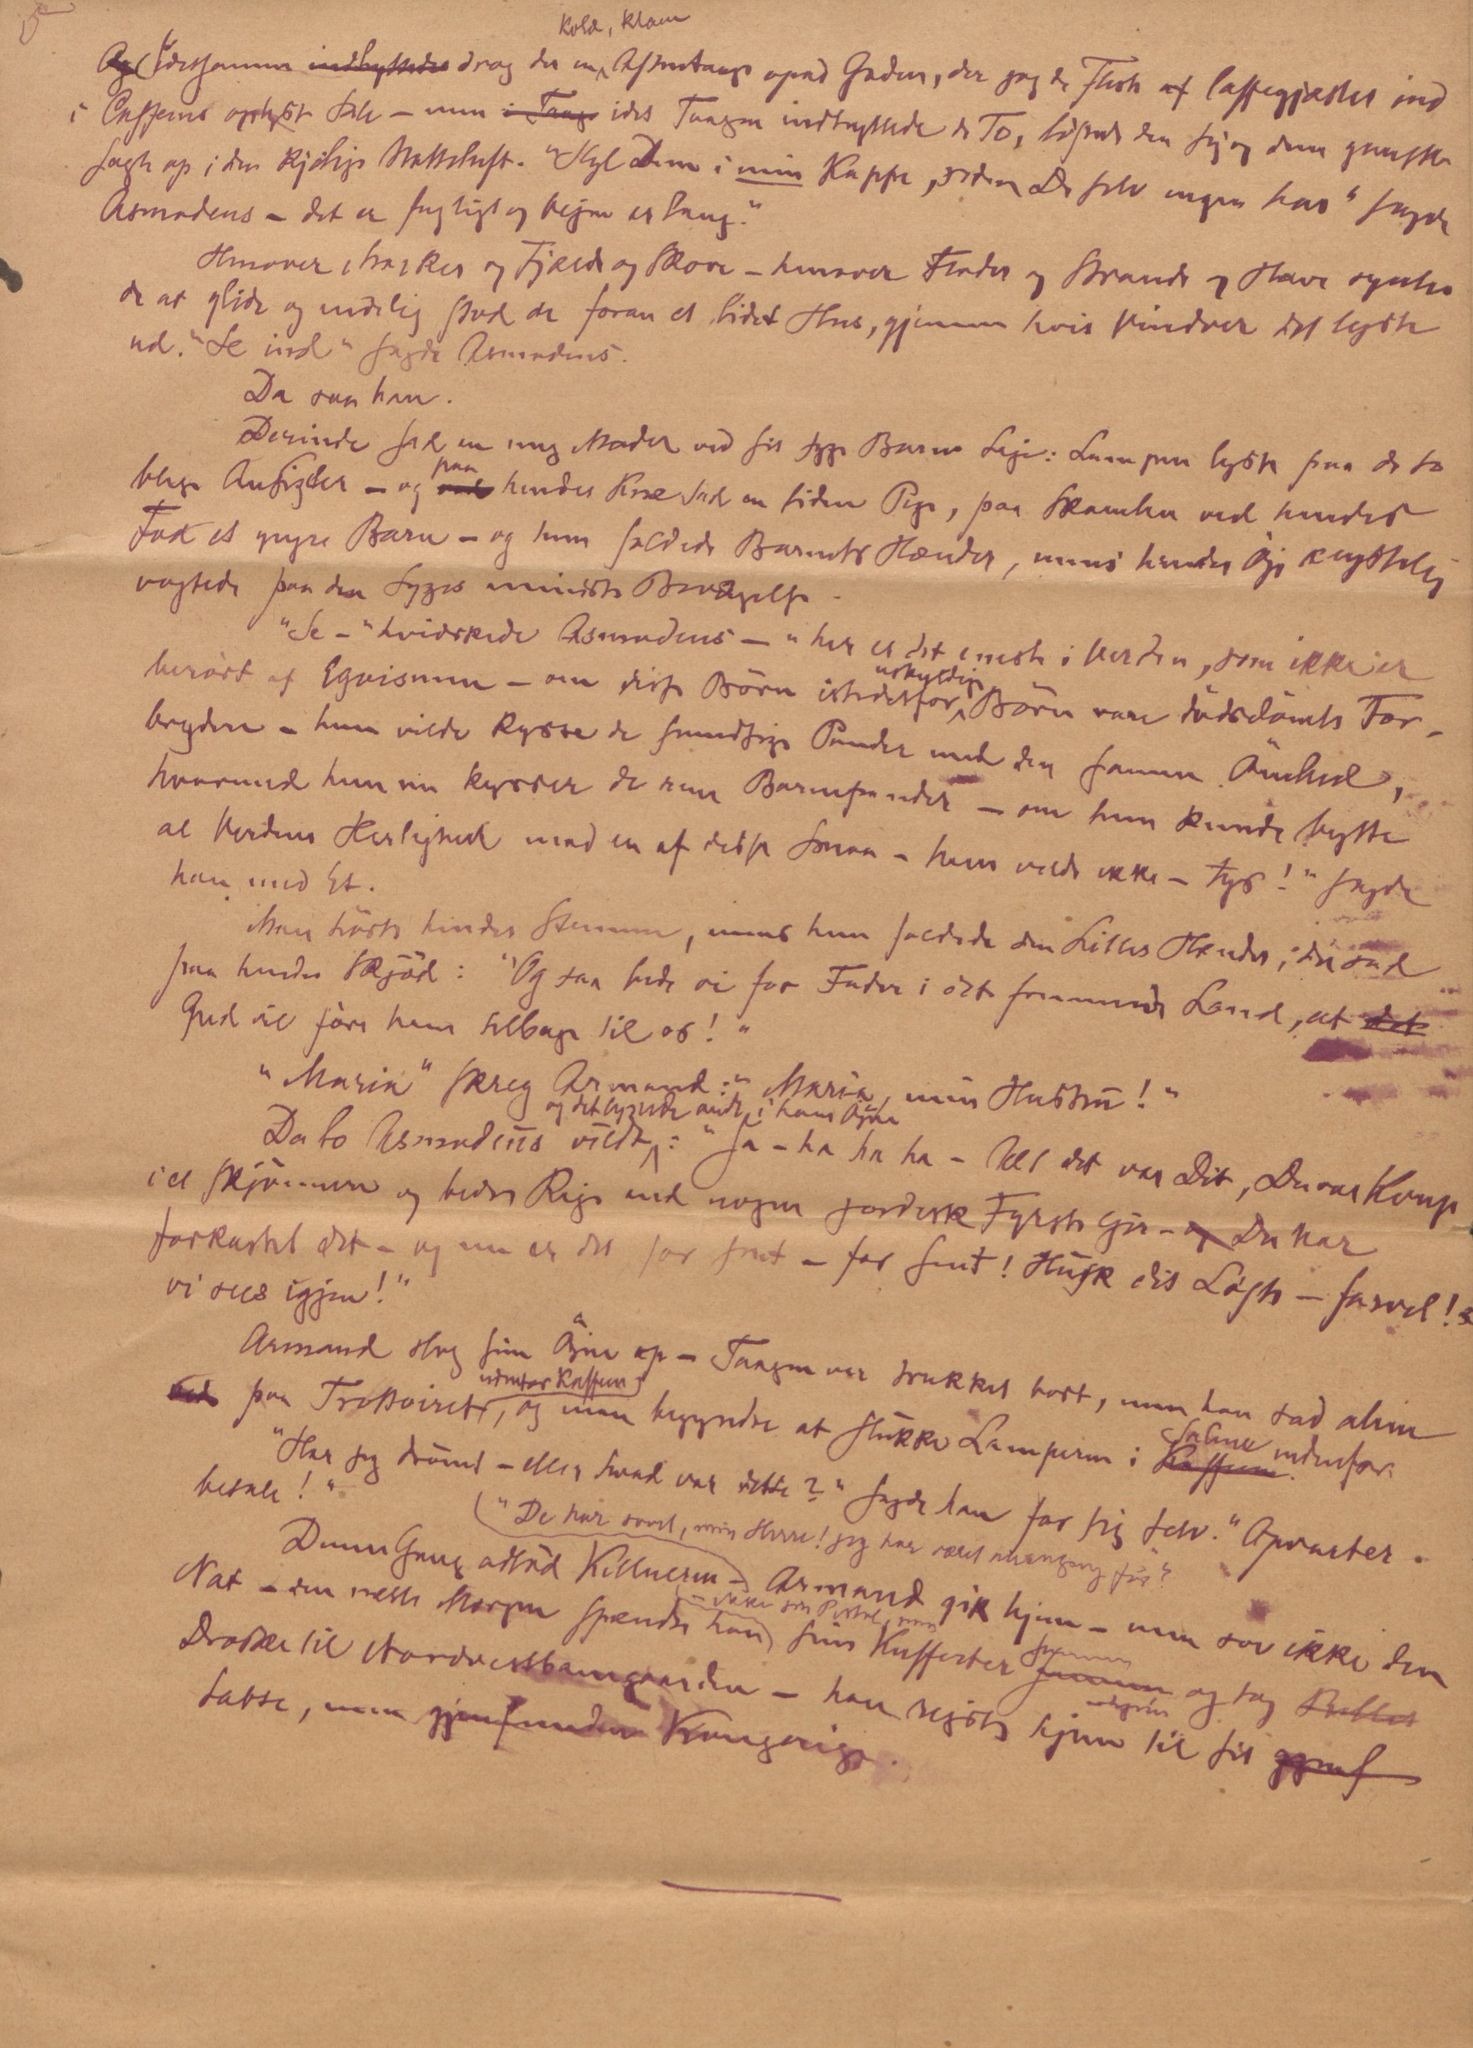 5
kold, klam
Og I detsamme indhyllede drog der en Aftentaage opad Gaden, der jog de Fleste af Caffegjæster ind
i Cafféens oplyste Sale – men i Taage idet Taagen indhyllede de To, løftede den sig og dem ganske
sagte op i den kjølige Natteluft. "Hyl Dem i min Kappe, siden De selv ingen har" sagde
Asmodeus – det er fugtigt og Vejen er lang."
Henover Marker og Fjelde og Skove – henover Floder og Strande og Have syntes
de at glide og endelig stod de foran et lidet Hus, gjennem hvis Vinduer det lyste
ud. "Se ind" sagde Asmodeus.
Da saa han.
Derinde sad en ung Moder ved sit syge Barns Leje: Lampen lyste paa de to
paa
blege Ansigter – og ved hendes Knæ sad en liden Pige, paa Skamlen ved hendes
Fod et yngre Barn – og hun foldede Barnets Hænder, mens hendes Öje ængstelig
vogtede paa den Syges mindste Bevægelse.
"Se –" hviskede Asmodeus – "her er det eneste i Verden, som ikke er
uskyldige
berört af Egoismen – om disse Börn istedetfor Börn vare dödsdömte For-
brydere – hun vilde kysse de syndige Pander med den samme Ömhed,
hvormed hun nu kysser de rene Barnepander – om hun kunde bytte
al Verdens Herlighed mod en af disse Smaa – hun vilde ikke – tys!" sagde
han med Et.
Man hörte hendes Stemme, mens hun foldede den Lilles Hænder, der sad
paa hendes Skjöd: "Og saa bede vi for Fader i det fremmede Land, at det
Gud vil före ham tilbage til os!"
"Maria" skreg Armand: "Maria, min Hustru!"
og det lyste ondt i hans Öjne
Da lo Asmodeus vildt: "Ja – ha ha ha – Alt det var Dit, Du var Konge
i et skjönnere og bedre Rige end nogen jordisk Fyrste ejer – og Du har
forkastet det – og nu er det for sent – for sent! Husk dit Løfte – farvel!
vi sees igjen!"
Armand slog sine Öjne op – Taagen var trukket bort, men han sad alene
udenfor Kaffeen
ved paa Trottoiret, og man begyndte at slukke Lamperne i Kaffeen indenfor.
Salene
"Har jeg drömt – eller hvad var dette?" sagde han for sig selv. "Opvarter –
betale!"
"De har sovet, min Herre! jeg har været mangegang før"
Denne Gang adlöd Kellneren – Armand gik hjem – men sov ikke den
– ikke sin Pistol, men
Nat – den næste Morgen spændte han sine Kufferter sammen og tog Billet
Droske til Nordvestbanegaarden – han rejste hjem til sit gjenf
tabte, men gjenfundne Kongerige.